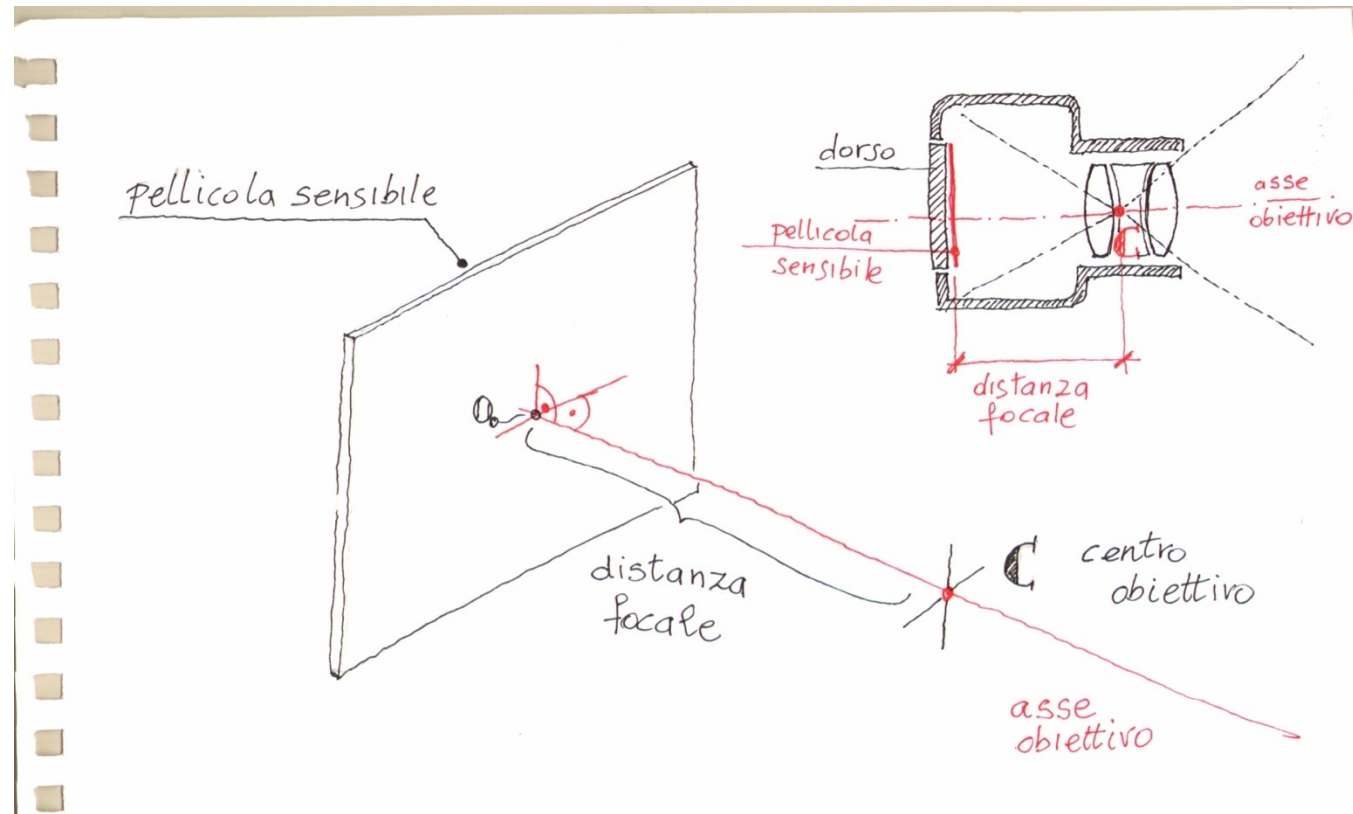 pellicola sensibile
dorso
pellicola
sensibile
asse
obiettivo
C
distanza
focale
O
distanza
focale
C centro
obiettivo
asse
obiettivo